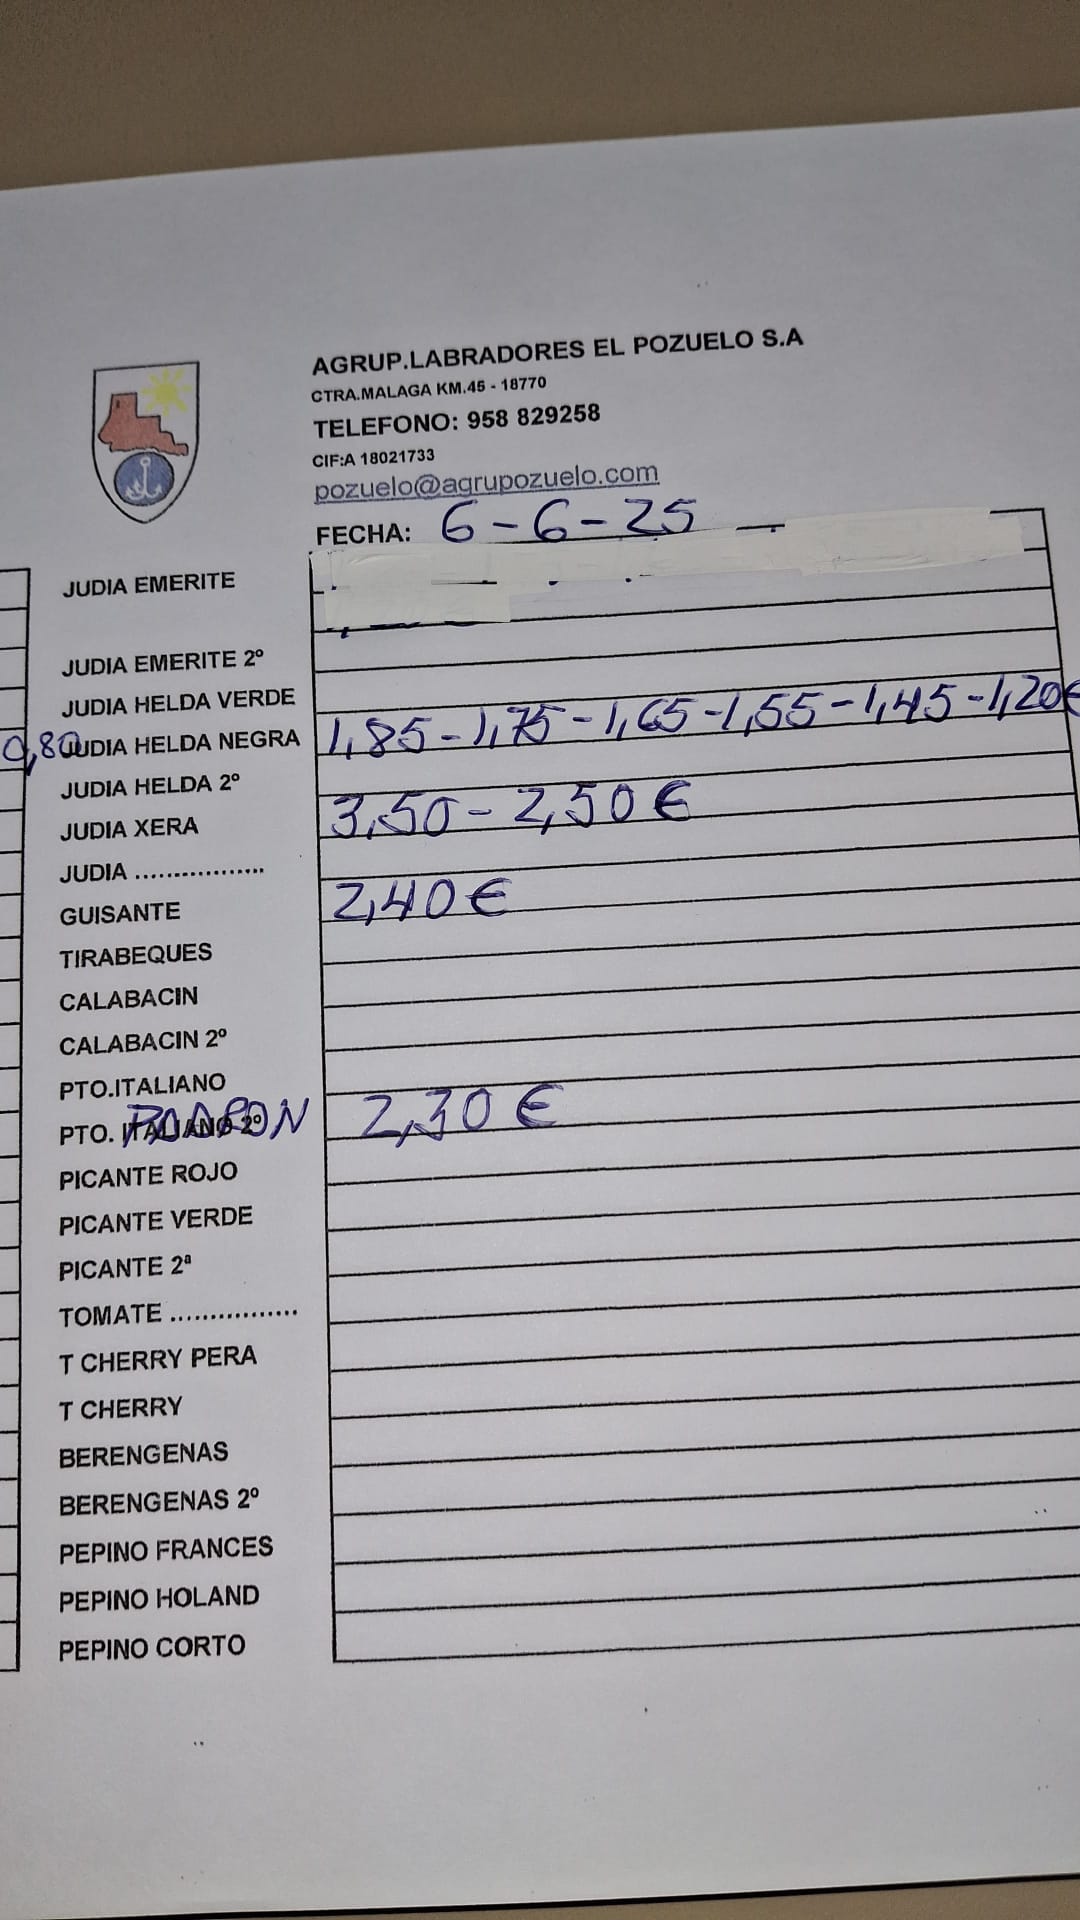 AGRUP.LABRADORES EL POZUELO S.A
CTRA.MALAGA KM.45 - 18770
TELEFONO: 958 829258
CIF:A 18021733
pozuelo@agrupozuelo.com
FECHA: 6-6-25
JUDIA EMERITE
JUDIA EMERITE 2º
JUDIA HELDA VERDE
0,80 JUDIA HELDA NEGRA 1,85-1,75-1,65-1,55-1,45-1,20€
JUDIA HELDA 2º
JUDIA XERA 3,50-2,50€
JUDIA ................
GUISANTE 2,40€
TIRABEQUES
CALABACIN
CALABACIN 2º
PTO.ITALIANO
PTO. ITALIANO 2º PADRON 2,30€
PICANTE ROJO
PICANTE VERDE
PICANTE 2ª
TOMATE ................
T CHERRY PERA
T CHERRY
BERENGENAS
BERENGENAS 2º
PEPINO FRANCES
PEPINO HOLAND
PEPINO CORTO